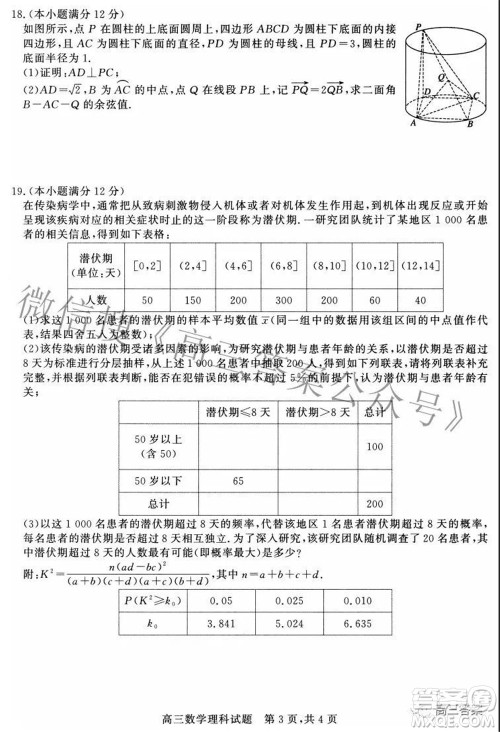 18.(本小题满分12分)
如图所示,点P在圆柱的上底面圆周上,四边形ABCD为圆柱下底面的内接
四边形,且AC为圆柱下底面的直径,PD为圆柱的母线,且PD=3,圆柱的
底面半径为1.
(1)证明:AD⊥PC;
(2)AD=√2,B为AC的中点,点Q在线段PB上,记PQ=2QB,求二面角
B-AC-Q的余弦值.
P
Q
D
C
A
B
19.(本小题满分12分)
在传染病学中,通常把从致病刺激物侵入机体或者对机体发生作用起,到机体出现反应或开始
呈现该疾病对应的相关症状时止的这一阶段称为潜伏期.一研究团队统计了某地区1 000名患
者的相关信息,得到如下表格:
潜伏期(单位:天) [0,2] (2,4] (4,6] (6,8] (8,10] (10,12] (12,14]
人数 50 150 200 300 200 60 40
(1)求这1 000名患者的潜伏期的样本平均数x̄(同一组中的数据用该组区间的中点值作代
表,结果四舍五入为整数);
(2)该传染病的潜伏期受诸多因素的影响,为研究潜伏期与患者年龄的关系,以潜伏期是否超过
8天为标准进行分层抽样,从上述1 000名患者中抽取200人,得到如下列联表,请将列联表补充
完整,并根据列联表判断,能否在犯错误的概率不超过5%的前提下,认为潜伏期与患者年龄有
关;
潜伏期≤8天 潜伏期>8天 总计
50岁以上(含50) 100
50岁以下 65
总计 200
(3)以这1 000名患者的潜伏期超过8天的频率,代替该地区1名患者潜伏期超过8天的概率,
每名患者的潜伏期是否超过8天相互独立.为了深入研究,该研究团队随机调查了20名患者,其
中潜伏期超过8天的人数最有可能(即概率最大)是多少?
附:K²=n(ad-bc)²/((a+b)(c+d)(a+c)(b+d)),其中n=a+b+c+d.
P(K²≥k₀) 0.05 0.025 0.010
k₀ 3.841 5.024 6.635
高三数学理科试题 第3页,共4页
微信搜《高三答案公众号》
高三答案